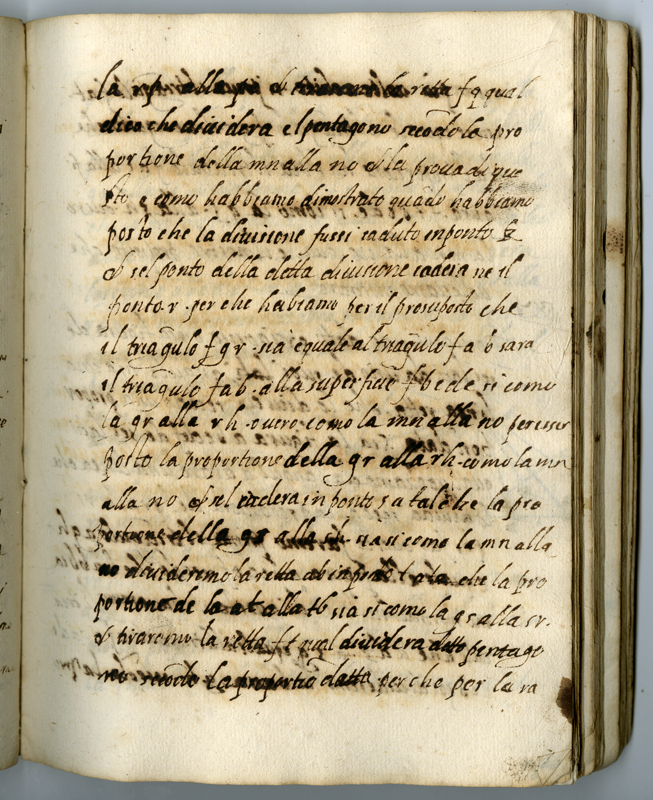 la alla retta f q qual
dico che dividera el pentagono secōdo la pro
portione della mn alla no & la prova di que
sto e como habbiamo dimostrato quādo habbiamo
posto che la divisione fussi caduto inponto
& sel ponto della detta divisione cadera ne il
ponto r. perche habiamo per il presuposto che
il triāgulo f g r. sia equale al triāgulo f a b sara
il triāgulo f a b. alla superficie f b e d e si como
la gr alla rh. overo como la mn alla no peresser
posto la proportione della gr alla rh. como la mn
alla no & sel cadera in ponto s a tale che la pro
portione della gs alla sh. sia si como la mn alla
no divideremo la retta ab in t a tale che la pro
portione de la at alla tb sia si como la gs alla sr.
& tiraremo la retta f t qual dividera ditto pentago
no secōdo la proportiō datta perche per la ra